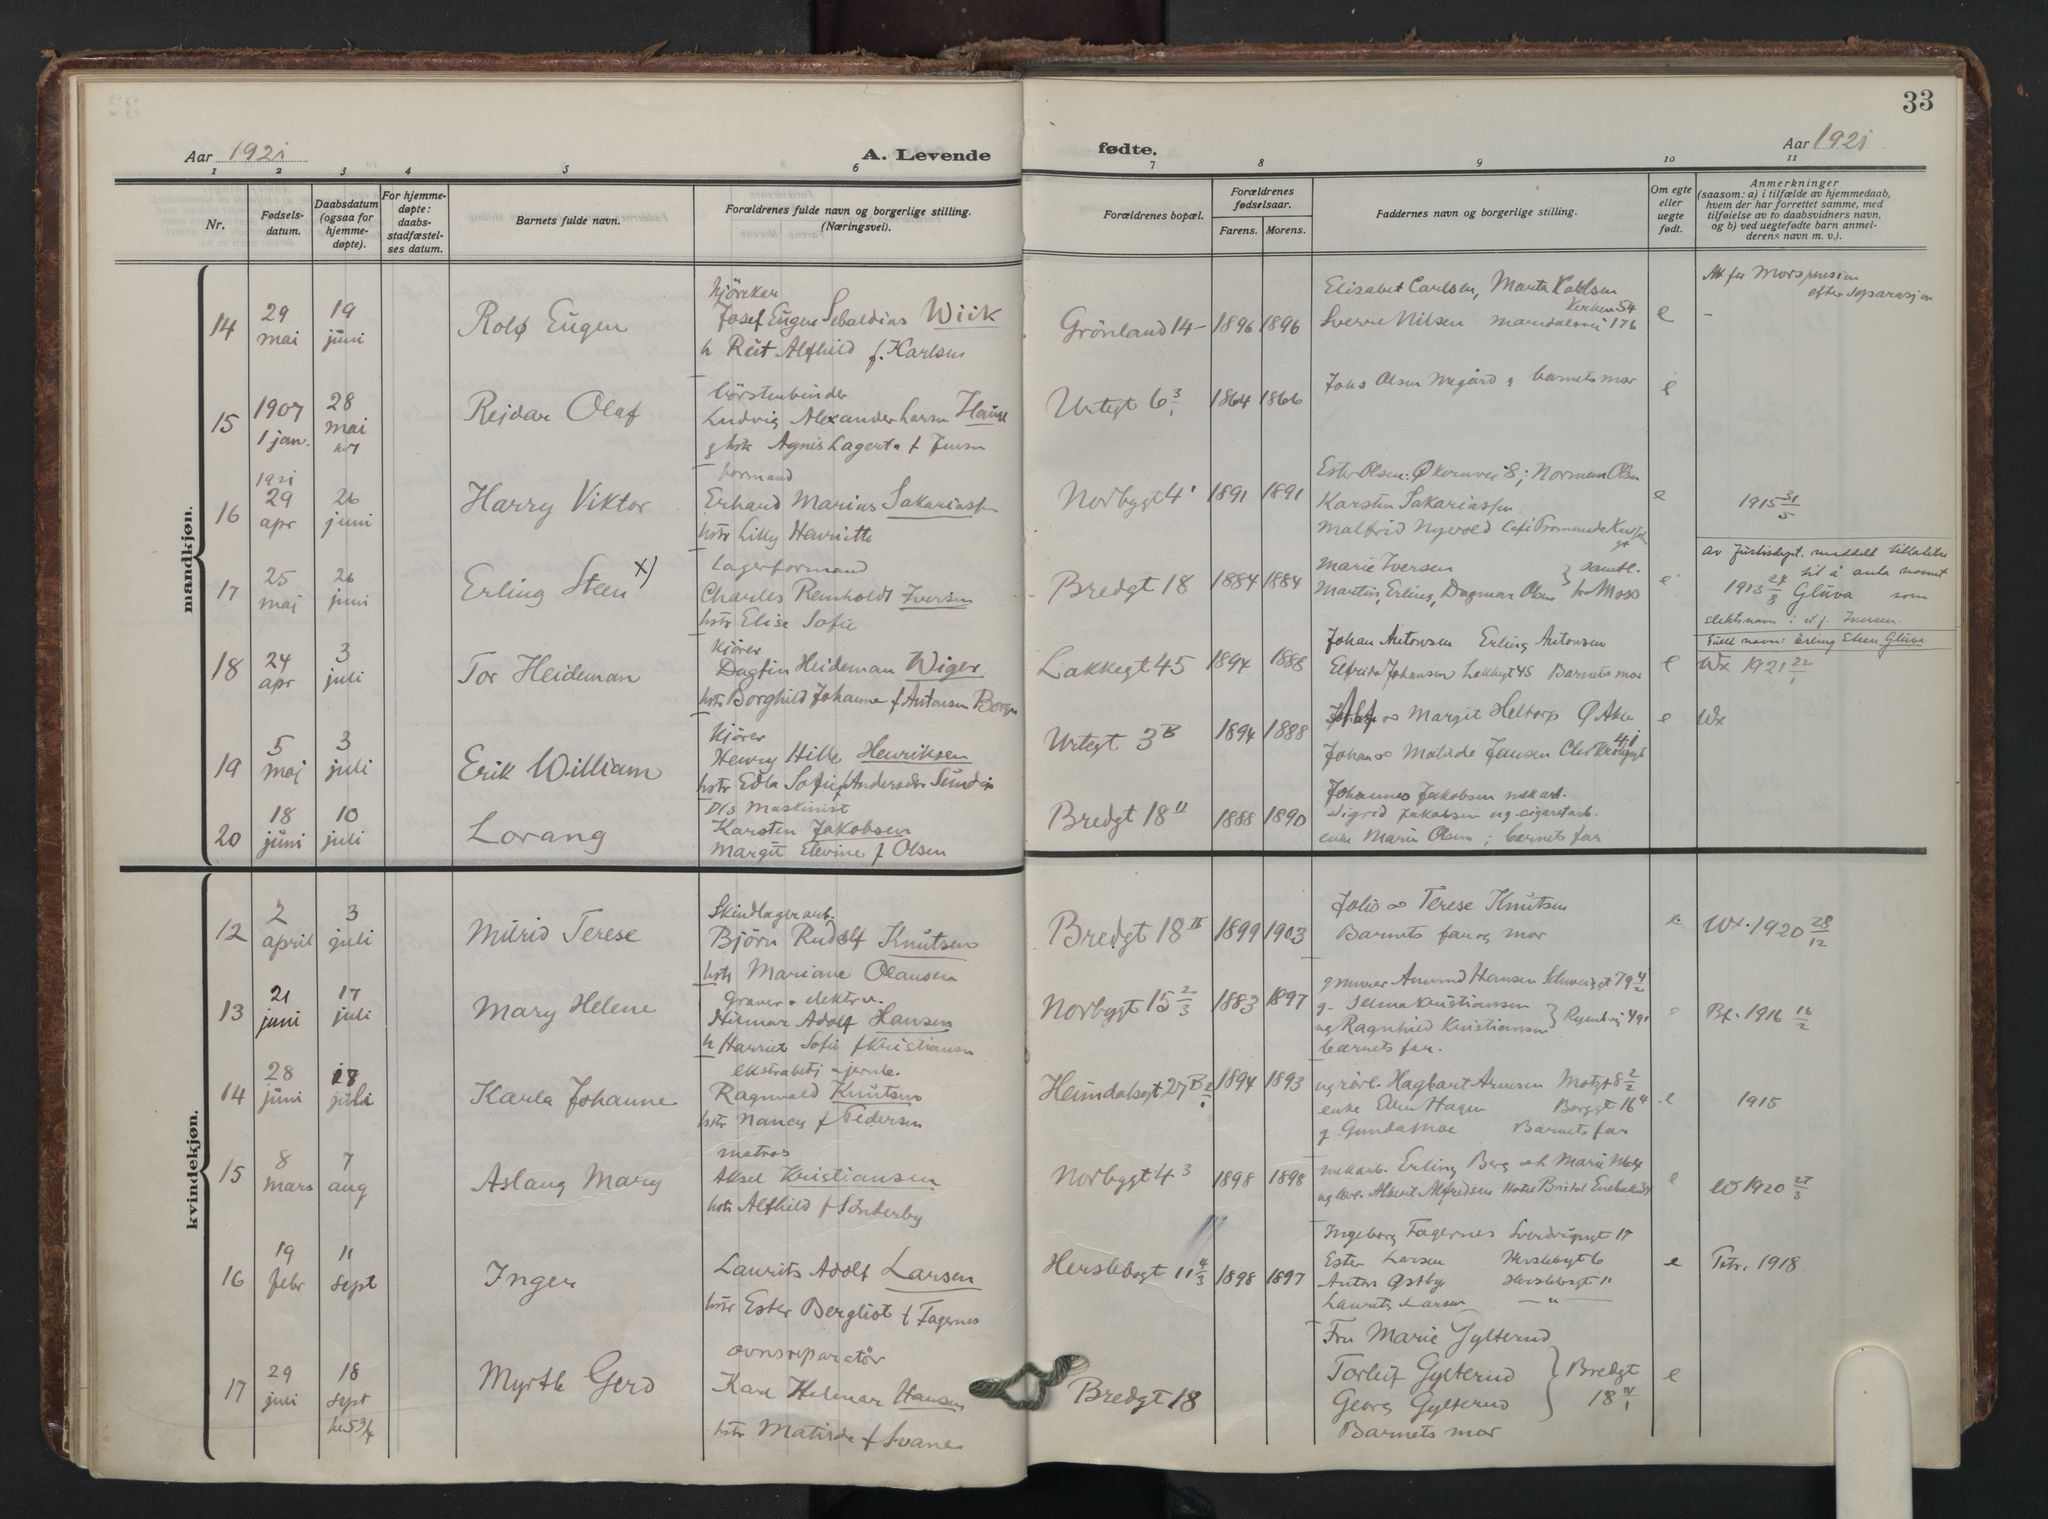 33
Aar 1921
A. Levende
fødte.
Aar 1921
1 2 3 4 5 6 7 8 9 10 11
Nr.
Fødsels-
datum.
Daabsdatum
(ogsaa for
hjemme-
døpte).
For hjemme-
døpte:
daabs-
stadfæstel-
ses datum.
Barnets fulde navn.
Forældrenes fulde navn og borgerlige stilling.
(Næringsvei).
Forældrenes bopæl.
Forældrenes
fødselsaar.
Farens. Morens.
Faddernes navn og borgerlige stilling.
Om egte
eller
uegte
født.
Anmerkninger
(saasom: a) i tilfælde av hjemmedaab,
hvem der har forrettet samme, med
tilføielse av to daabsvidners navn,
og b) ved uegtefødte barn anmel-
derens navn m. v.).
mandkjøn.
14
29
mai
19
juni
Rolf Eugen
kjörekar
Josef Eugen Sebaldias Wiik
h Reit Alfhild f. Karlsen
Grönland 14 - 1896 1896
Elisabet Carlsen, Marta Karlsen
Sverre Nilsen Maridalsvei 176
e
Att for Morspension
efter Separasjon
15
1907
1 jan.
28
mai
Reidar Olaf
börstenbinder
Ludvig Alexander Larsen
g hstr Agnes Lagerta f Jensen
Urtegt 6 3/1 1864 1866
Johs Olsen g barnets mor
e
16
1921
29
apr
26
juni
Harry Viktor
formand
Erhard Marius Sakariassen
hstr Lilly Henriette
Norbygt 4 1 1891 1891
Ester Olsen: Økernvei 8; Norman Olsen
Karsten Sakariassen.
Malfrid Nyvold Café Promenade
e
1915 31/5
17
25
maj
26
juni
Erling Steen x)
Lagerformand
Charles Reinholdt Iversen
hstr Elise Sofie
Bredgt 18 1884 1884
Marie Iversen } samtl.
Martin, Erling, Dagmar Olsen Moss
e
Av Justisdept. meddelt tillatelse
til å anta navnet
1913 24/8 Gluva som
slektsnavn i st. f. Iversen.
Fullt navn: Erling Steen Gluva
18
24
apr
3
juli
Tor Heideman
Kjörer
Dagfin Heideman Wiger
hstr Borghild Johanne f Antonsen
Lakkegt 45 1894 1888
Johan Antonsen Erling Antonsen
Elfrida Johansen Lakkegt 45 Barnets mor
e
Wx 1921 22/1
19
5
maj
3
juli
Erik William
Kjörer
Henry Hille Henriksen
hstr Edla Sofie f Andersdtr Sundin
Urtegt 3 B 1894 1888
Alf & Margit Heltorp
Johan & Matilde Jansen 41
e
Wx
20
18
juni
10
juli
Lorang
D/S Maskinist
Karsten Jakobsen
Margit Elevine f Olsen
Bredgt 18 II 1888 1890
Johannes Jakobsen mek arb.
Sigrid Jakobsen ug cigaretarb.
enke Marie Olsen; barnets far
kvindekjøn.
12
2
april
3
juli
Murid Terese
Skindlagerarb.
Björn Rudolf Knutsen
hstr Mariane Olausen
Bredgt 18 II 1899 1903
Julio & Terese Knutsen
Barnets far og mor
e
Wx. 1920 28/12
13
21
juni
17
juli
Mary Helene
Graver & elektr.
Hilmar Adolf Hansen
h Harriet Sofie f Kristiansen
Norbygt 15 2/3 1883 1897
g murer Amund Hansen
g. Selma Kristiansen
ug Ragnhild Kristiansen
barnets far.
e
Bf. 1916 16/2
14
28
juni
18
juli
Karla Johanne
ekstrabetj
Ragnvald Knutsen
hstr Nancy f Pedersen
Heimdalsgt 27 B 2/1 1894 1893
Hagbart Arnesen Motzgt 8 2/2
enke Ellen Hagen Borggt 16 4
g. Gunda Moe Barnets far
e
1915
15
8
mars
7
aug
Aslaug Mary
matros
Aksel Kristiansen
hstr Alfhild f Sönderby
Norbygt 4 3 1898 1898
mekarb. Erling Berg
Albert Alfredsen Hotel Bristol
e
W 1920 27/3
16
19
febr
11
sept
Inger
Laurits Adolf Larsen
hstr Ester Bergliot f Fagernes
Herslebsgt 11 4/3 1898 1897
Ingeborg Fagernes Sverdrupsgt 17
Ester Larsen Herslebsgt 6
Anton Östby Herslebsgt 11
Laurits Larsen — " —
e
Petr. 1918.
17
29
juli
18
sept
Myrth Gerd
ovnsreparatör
Karl Helmar Hansen
hstr Matilde f Svane
Bredgt 18
Fru Marie Gylterud
Torleif Gylterud } Bredgt
Georg Gylterud 18 IV/1
Barnets mor
e